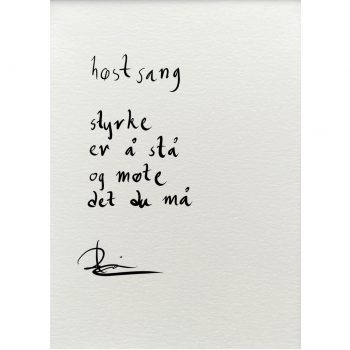 høstsang
styrke
er å stå
og møte
det du må